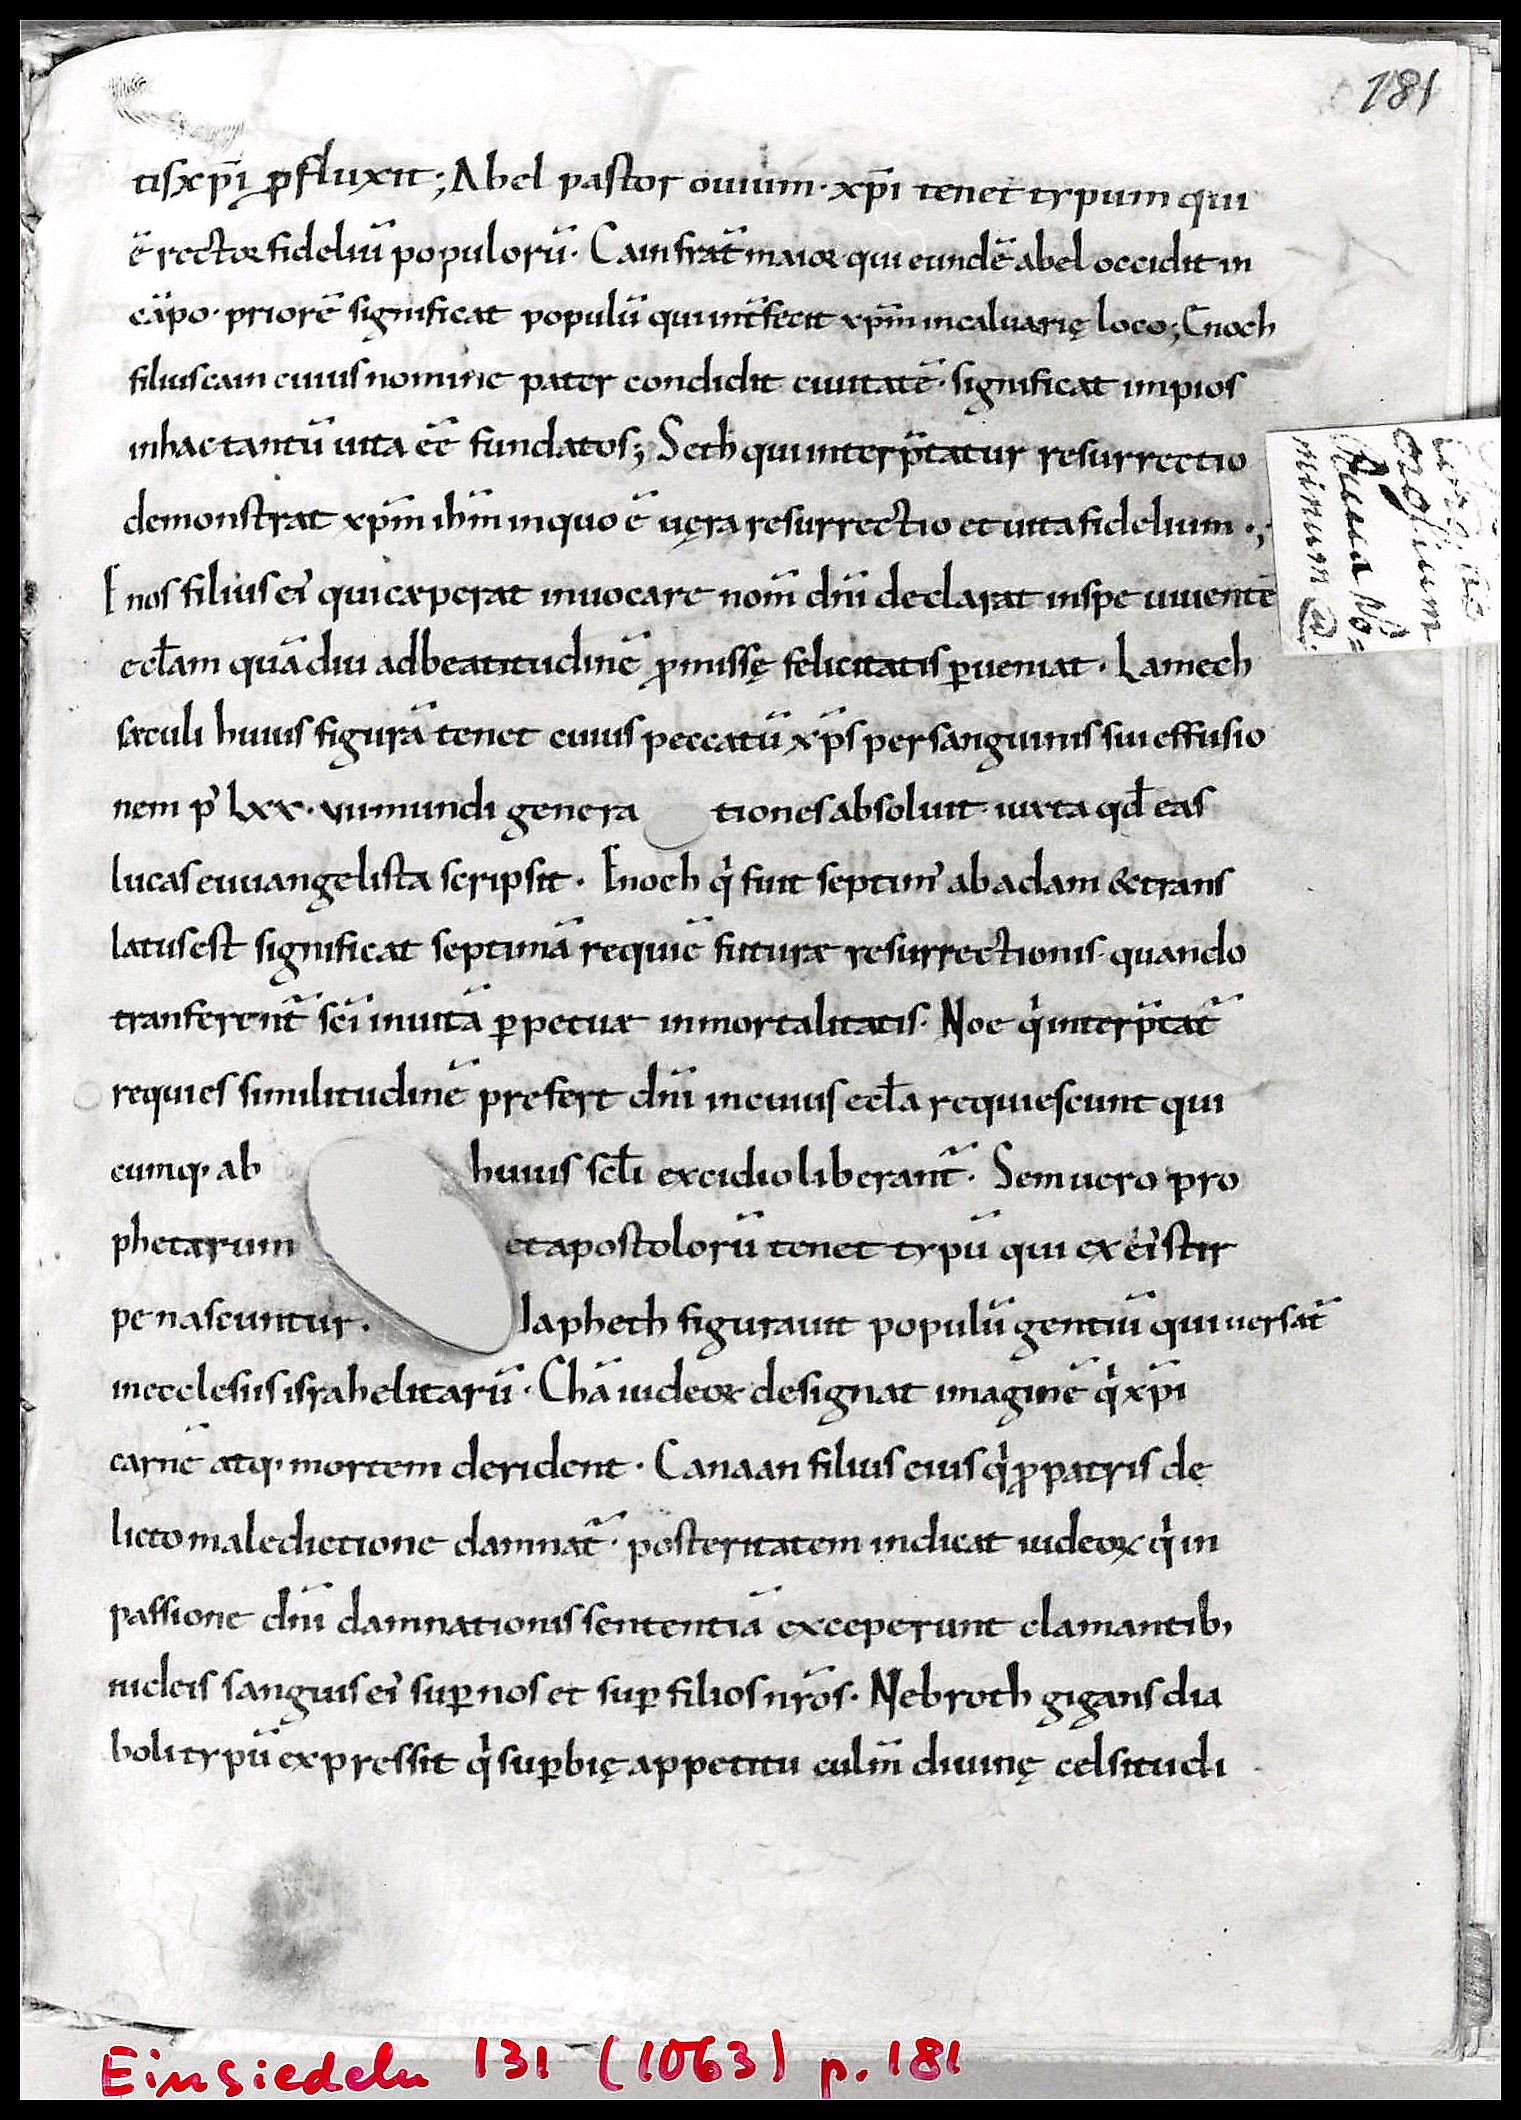 181
tis xp̄i ꝓfluxit; Abel pastor ouium · xp̄i tenet typum qui
ē rector fideliū populorū · Cain frat̄ maior qui eundē abel occidit in
cāpo · priorē significat populū qui int̄fecit xp̄m in caluarię loco; Enoch
filius cain cuius nomine pater condidit ciuitatē · significat impios
in hac tantū uita eē̄ fundatos; Seth qui interp̄tatur resurrectio
demonstrat xp̄m ih̄m in quo ē uęra resurrectio et uita fidelium ·;
Enos filius ei᾽ qui cæperat inuocare nom̄ dn̄i declarat in spe uiuentē
eccl̄am quādiu ad beatitudinē ꝓmissę felicitatis ꝑueniat · Lamech
sæculi huius figurā tenet cuius peccatū xp̄s per sanguinis sui effusio
nem p᾽ lxx · vii mundi genera tiones absoluit · iuxta qd̄ eas
lucas euuangelista scripsit · Enoch qͥ fuit septim᾽ ab adam & trans
latus est significat septimā requiē futuræ resurrectionis · quando
tranferent̄ sc̄i in uitā ꝑpetuæ inmortalitatis · Noe qͥ interp̄tat̄
requies similitudinē prefert dn̄i in cuius eccl̄a requiescunt qui
cumq· ab huius scl̄i excidio liberant̄ · Sem uero pro
phetarum et apostolorū tenet typū qui ex ei᾽ stir
pe nascuntur · Iapheth figurauit populū gentiū qui uersat̄
in ecclesiis israhelitarū · Chā iudeoꝝ designat imaginē qͥ xp̄i
carnē atq· mortem derident · Canaan filius eius qͥ ꝓ patris de
licto maledictione damnat̄ · posteritatem indicat iudeoꝝ qͥ in
passione dn̄i damnationis sententiā exceperunt clamantib;
iudeis sanguis ei᾽ suꝑ nos et suꝑ filios nr̄os · Nebroth gigans dia
boli typū expressit qͥ suꝑbię appetitu culm̄ diuinę celsitudi
minum
Einsiedeln 131 (1063) p. 181